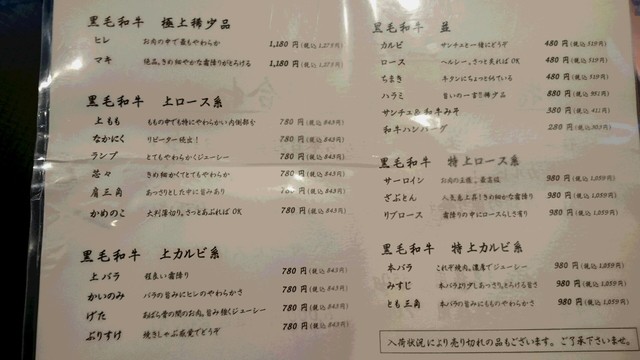 黒毛和牛 極上稀少品
ヒレ お肉の中で最もやわらか 1,180円(税込1,275円)
マキ 絶品。きめ細やかな霜降りがとろける 1,180円(税込1,275円)
黒毛和牛 上ロース系
上もも ももの中でも特にやわらかい内側部分 780円(税込843円)
なかにく リピーター続出! 780円(税込843円)
ランプ とてもやわらかくジューシー 780円(税込843円)
芯々 きめ細かくてとてもやわらか 780円(税込843円)
肩三角 あっさりとした中に旨みあり 780円(税込843円)
かめのこ 大判薄切り。さっとあぶればOK 780円(税込843円)
黒毛和牛 上カルビ系
上バラ 程良い霜降り 780円(税込843円)
かいのみ バラの旨みにヒレのやわらかさ 780円(税込843円)
げた あばら骨の間のお肉。旨み強くジューシー 780円(税込843円)
ぶりすけ 焼きしゃぶ感覚でどうぞ 780円(税込843円)
黒毛和牛 並
カルビ サンチュと一緒にどうぞ 480円(税込519円)
ロース ヘルシー。さっと炙ればOK 480円(税込519円)
ちまき 牛タンにちょっと似ている 480円(税込519円)
ハラミ 旨いの一言!!稀少品 880円(税込951円)
サンチュ&和牛みそ 380円(税込411円)
和牛ハンバーグ 280円(税込303円)
黒毛和牛 特上ロース系
サーロイン お肉の王様。最高級 980円(税込1,059円)
ざぶとん 人気急上昇!きめ細かな霜降り 980円(税込1,059円)
リブロース 霜降りの中にロースらしさ有り 980円(税込1,059円)
黒毛和牛 特上カルビ系
本バラ これぞ焼肉。濃厚でジューシー 980円(税込1,059円)
みすじ 本バラより少しあっさり。とろける旨さ 980円(税込1,059円)
とも三角 本バラの旨みにもものやわらかさ 980円(税込1,059円)
入荷状況により売り切れの品もございます。ご了承下さいませ。